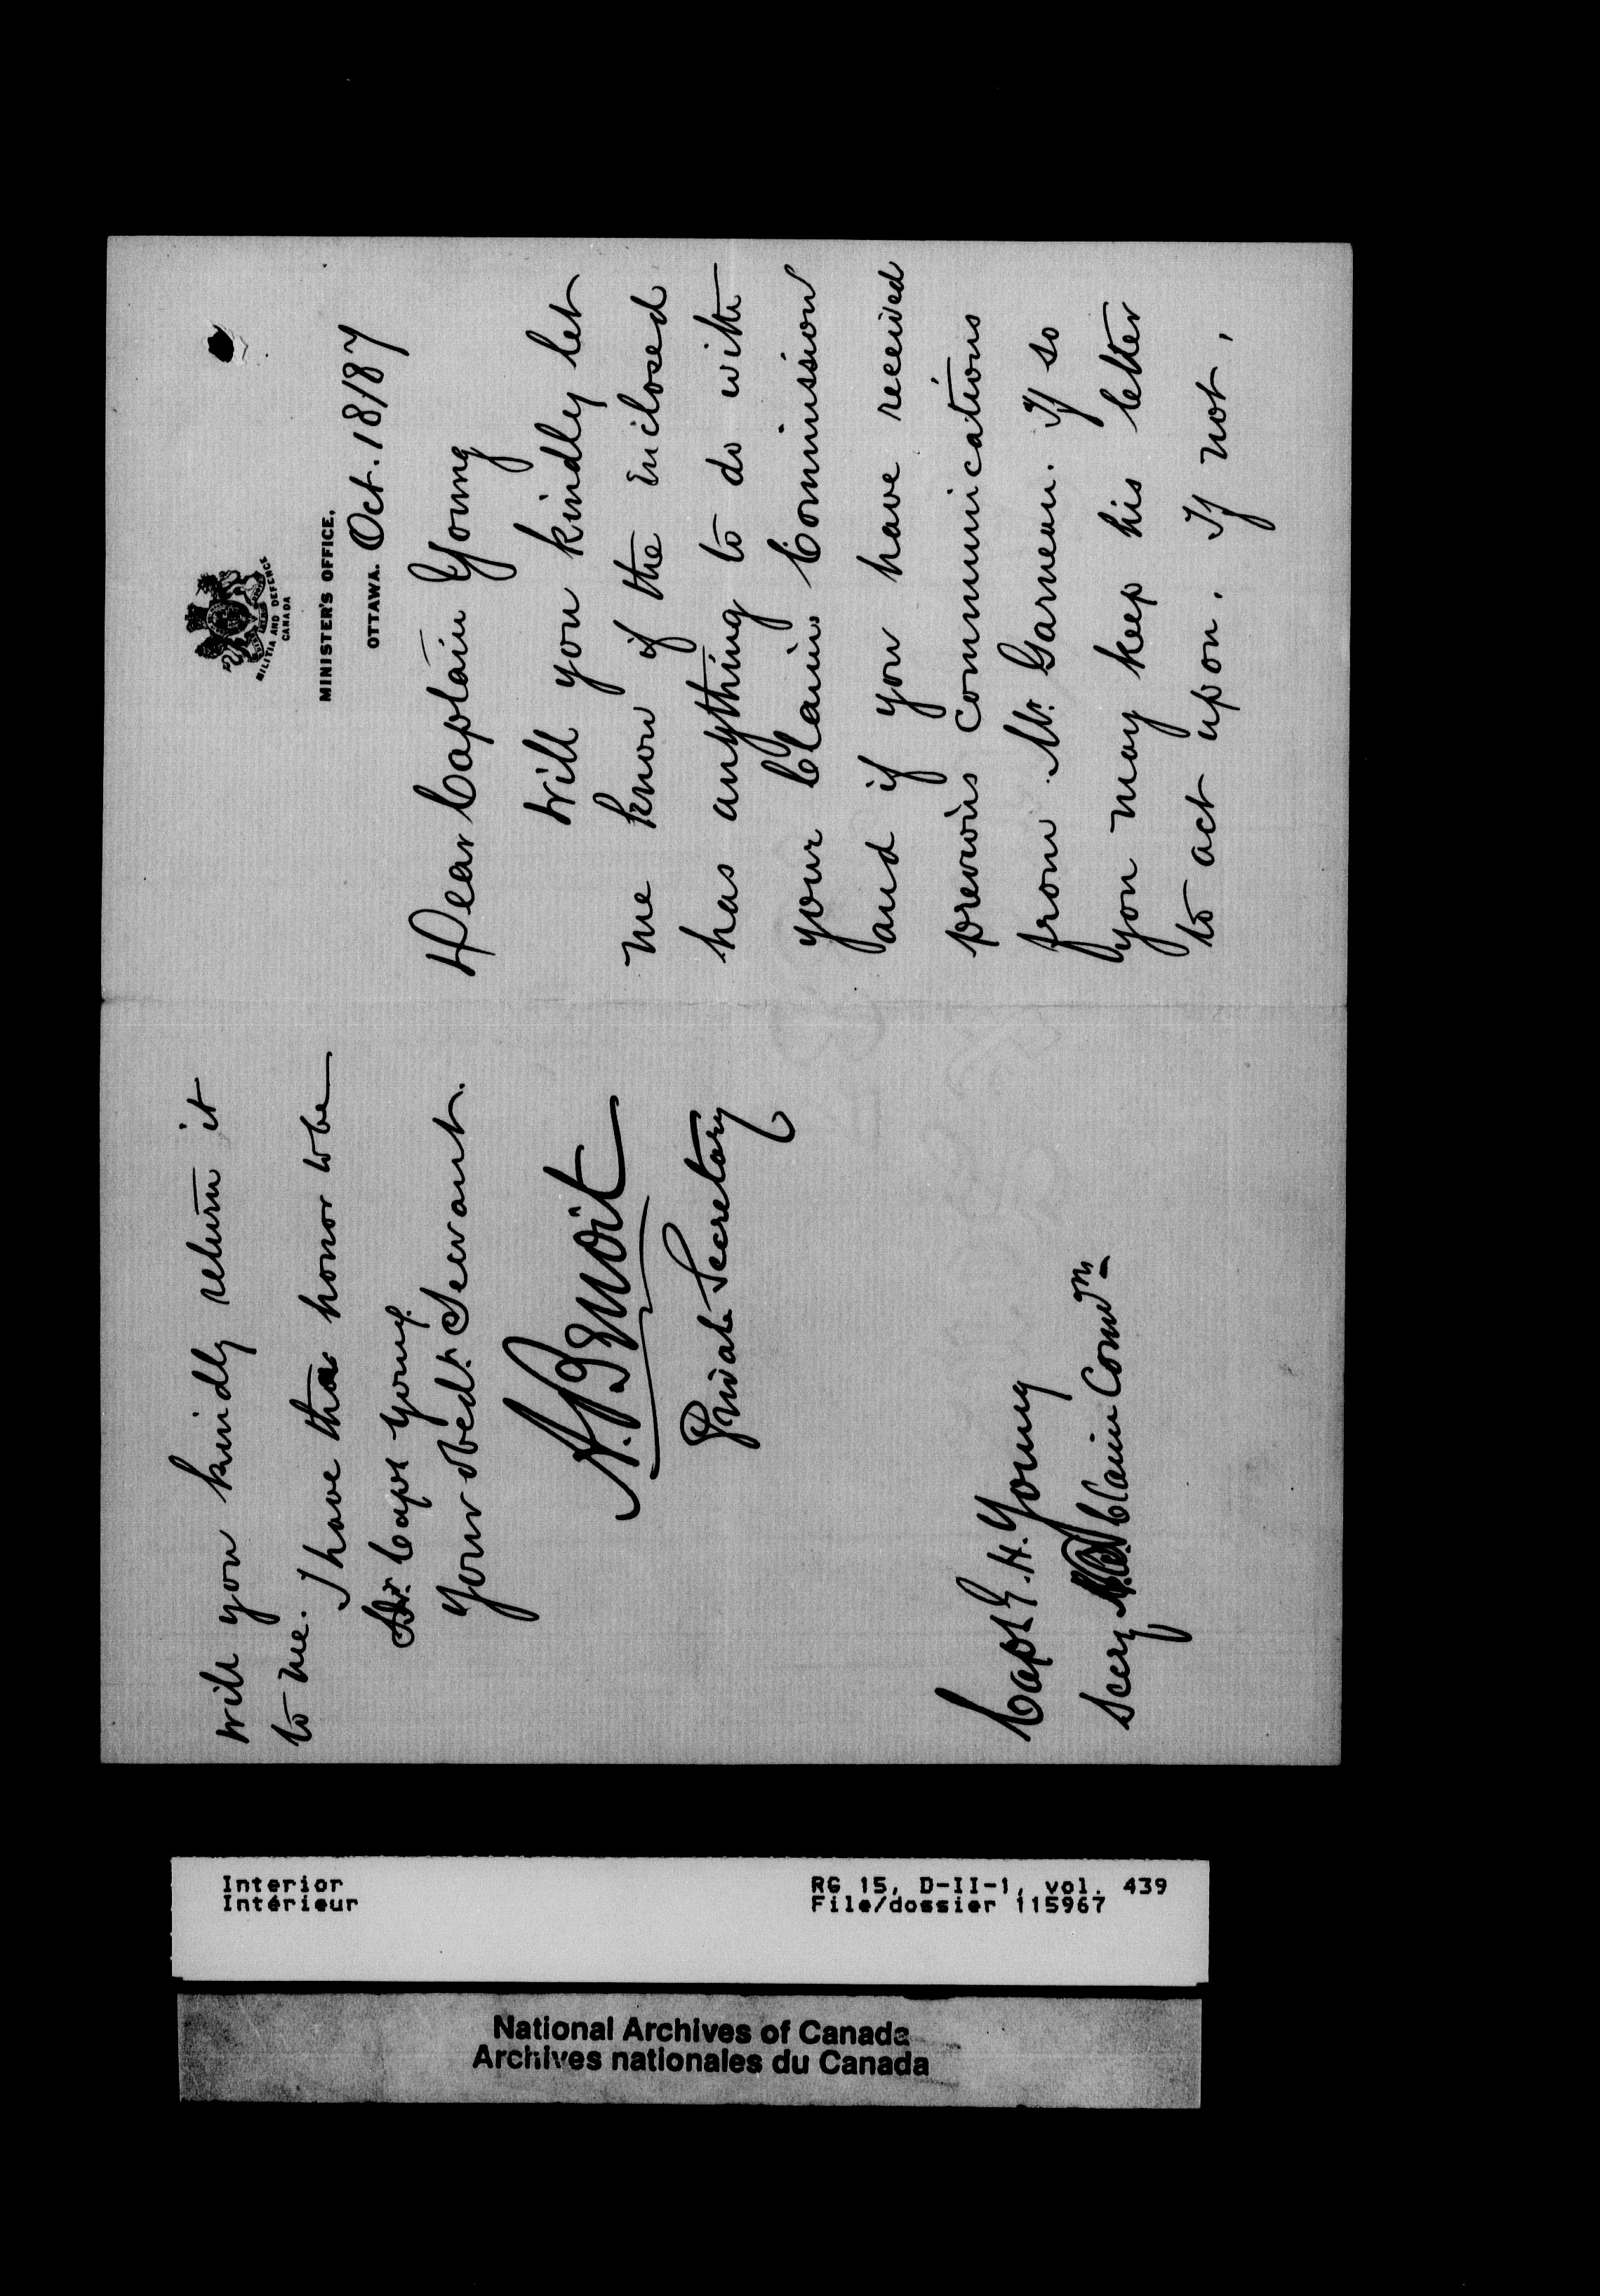 MILITIA AND DEFENCE
CANADA
MINISTER'S OFFICE,
OTTAWA. Oct. 18/87
Dear Captain Young
Will you kindly let
me know if the enclosed
has anything to do with
your Claims Commission
and if you have received
previous communications
from Mr. Garneau. If so
you may keep his letter
to act upon. If not,
will you kindly return it
to me.
I have the honor to be
Dr. Capt Young
Your obedt. Servant.
A. Benoit
Private Secretary
Capt G. H. Young
Secry Claim Comn
Interior
Intérieur
RG 15, D-II-1, vol. 439
File/dossier 115967
National Archives of Canada
Archives nationales du Canada